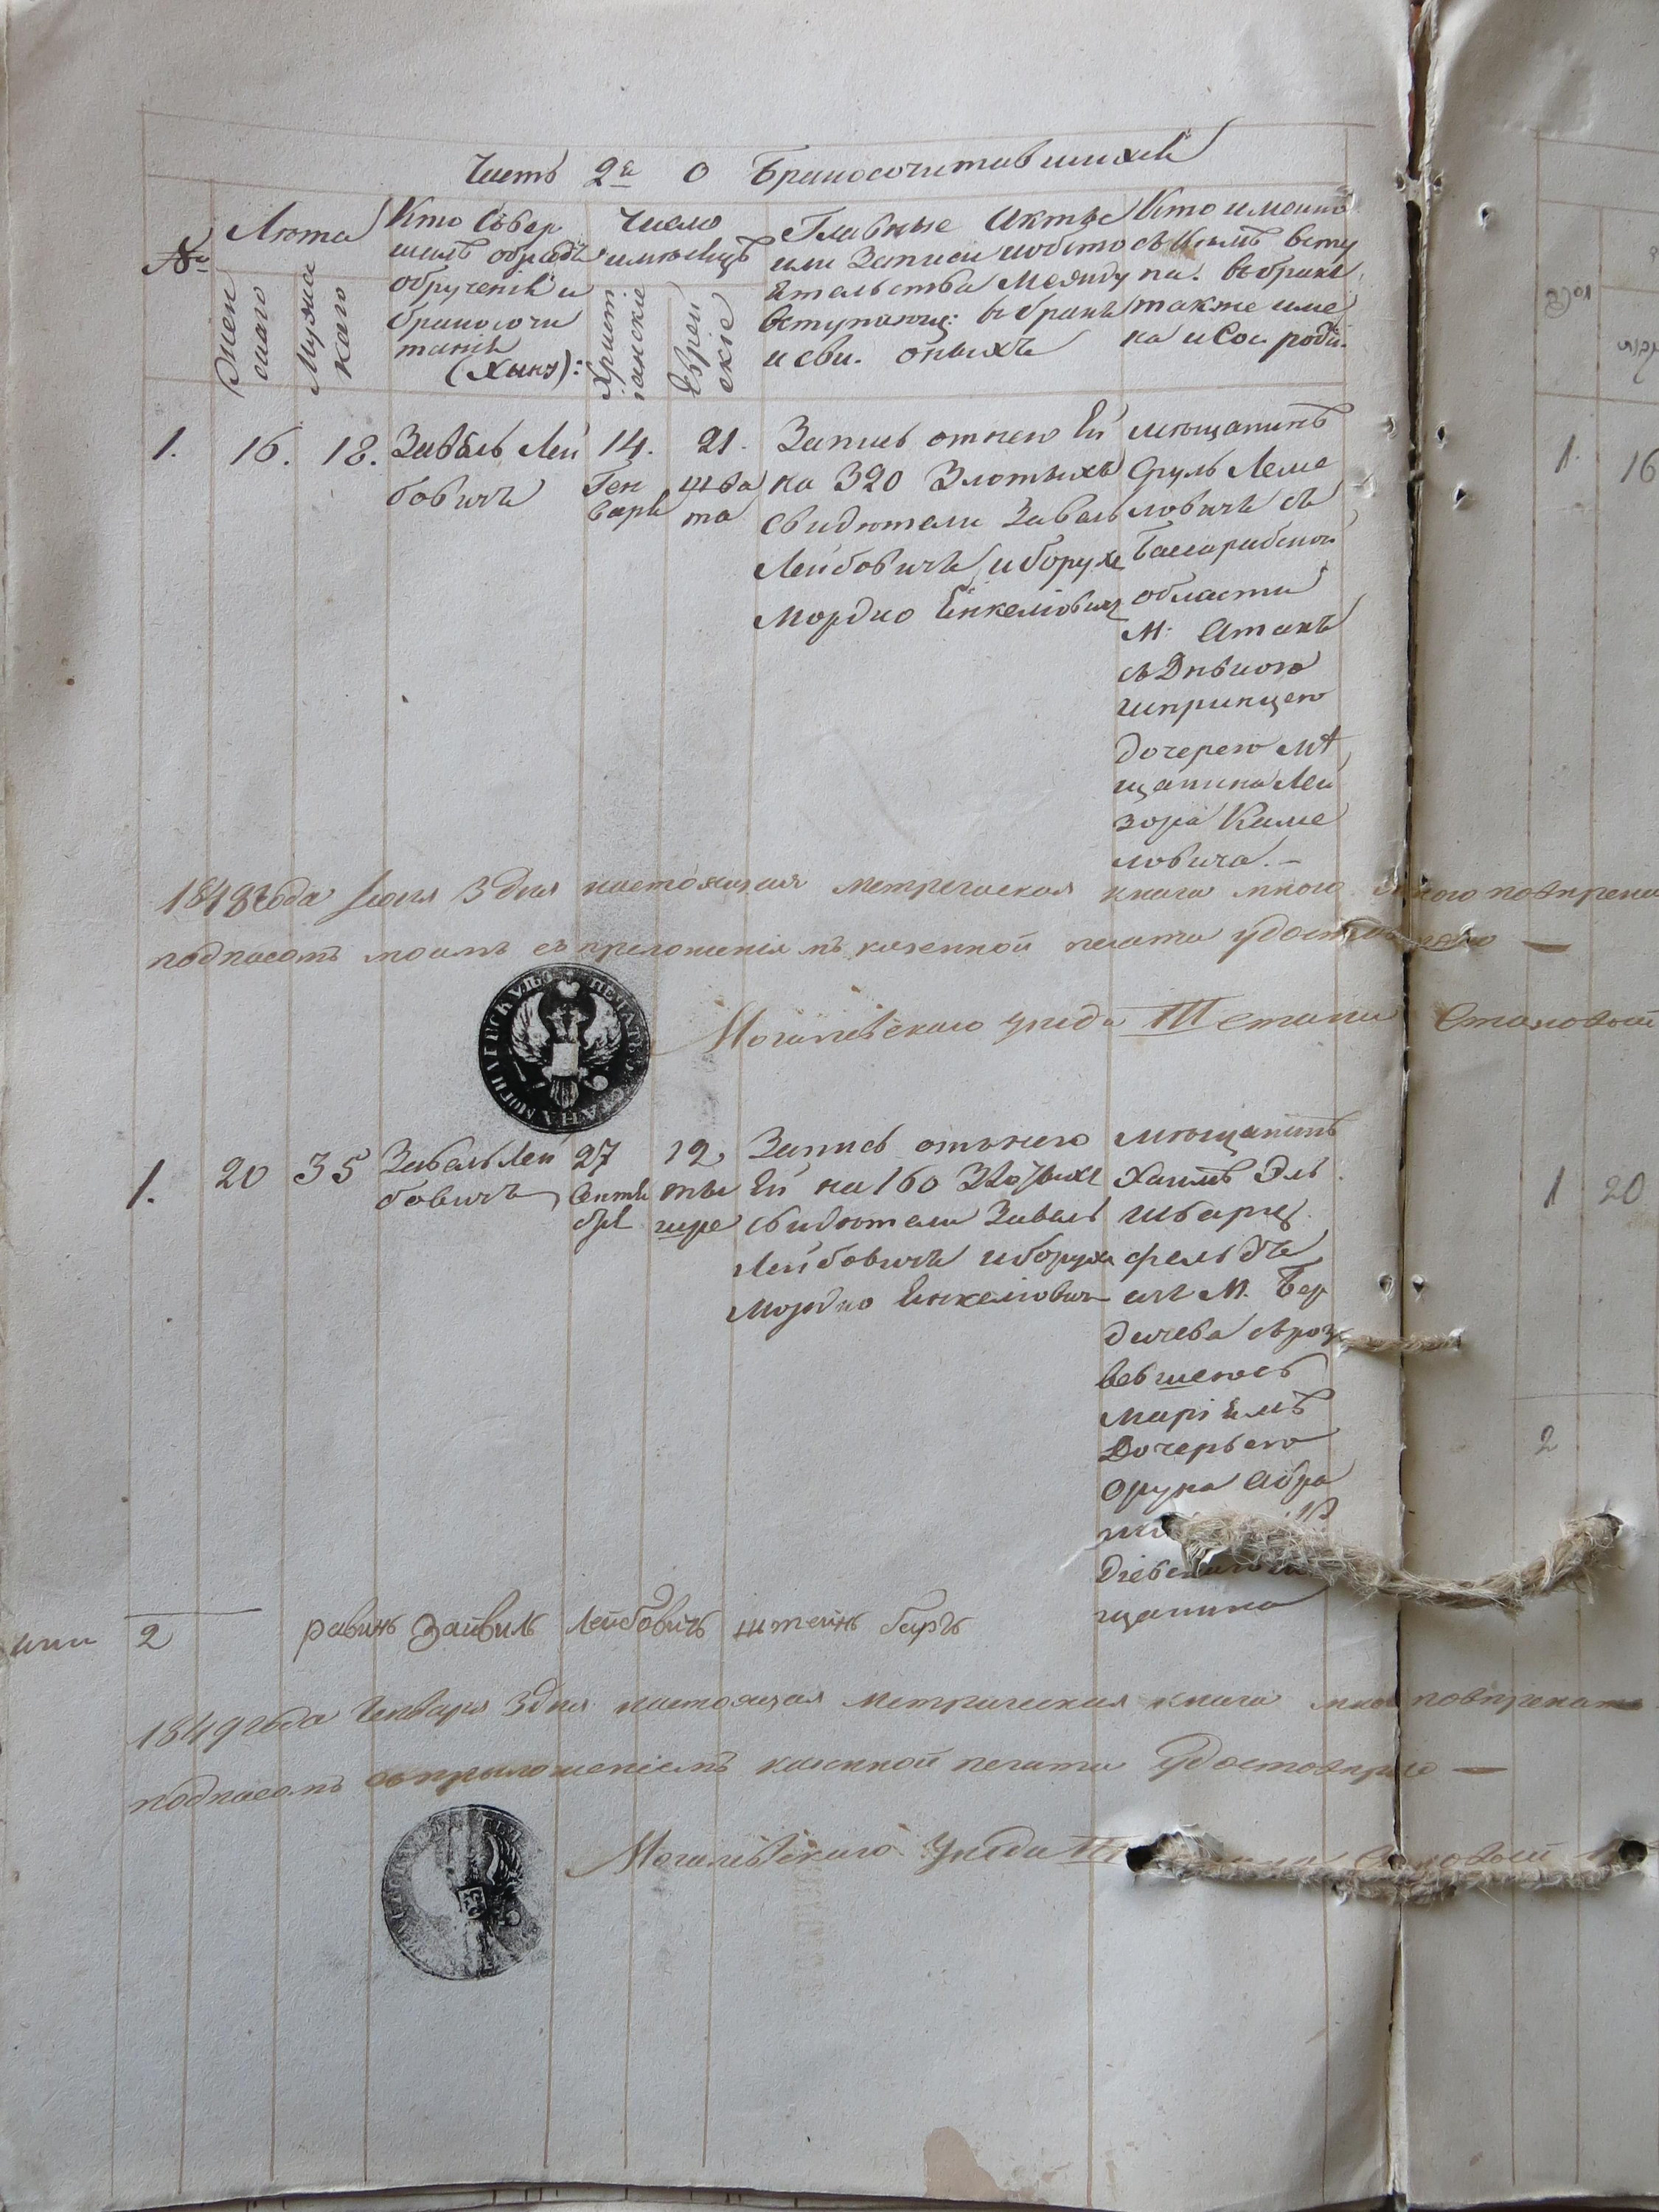 Часть 2я О Бракосочитавшихсѧ
№
Лѣта
Женскаго
Мужескаго
Кто Совер
шалъ обрядъ
обрученія и
бракосоче
танія
(Хыпэ):
Число
и мѣсяцъ
Христіанскіе
Еврейскіе
Главные Акты
или Записи и обсто
ятельства Между
вступающ: въ бракъ
и сви. оныхъ
Кто именно
съ Кѣмъ всту
па: въ бракъ
также име
на и Сос. роди:
1. 16. 18.
Завель Лей
бовичъ
14.
Ген
варя
21.
шва
та
Запись отнего Ей
на 320 Злотыхъ
свидѣтели Завель
Лейбовичъ и борухъ
Мордко Енкеліовичъ
мѣщанинъ
Сруль Леме
ловичъ съ
Басарабской
области
М. Атакъ
съ Дѣвкою
Шпринцею
дочерею мѣ
щанина Лей
зора Каме
ловича. —
1848 года Іюля 3 дня настоящая метрическая книга мною
подписомъ моимъ съ приложеніемъ казенной печати удостовѣряю —
Могилевскаго уѣзда III стана Становый
1. 20 35
Завель Лей
бовичъ
27
Сентя
бря
12
ты
шре
Запись отънего
Ей на 160 Злотыхъ
свидѣтели Завель
Лейбовичъ и борухъ
Мордко Енкеліовичъ
мѣщанинъ
Хаимъ Эль
шварц
фельдъ
изъ М. Бер
дичева съ роз
вевшеюсь
Маріемъ
Дочерью
Орука Абра
щанина
2 равинъ Зайвиль Лейбовичъ штейнъ бергъ
1849 года Генваря 3 дня настоящая метрическая книга мною повѣрена
подписомъ съ приложеніемъ казенной печати Удостовѣряю —
Могилевскаго Уѣзда III
1. 16
1 20
2